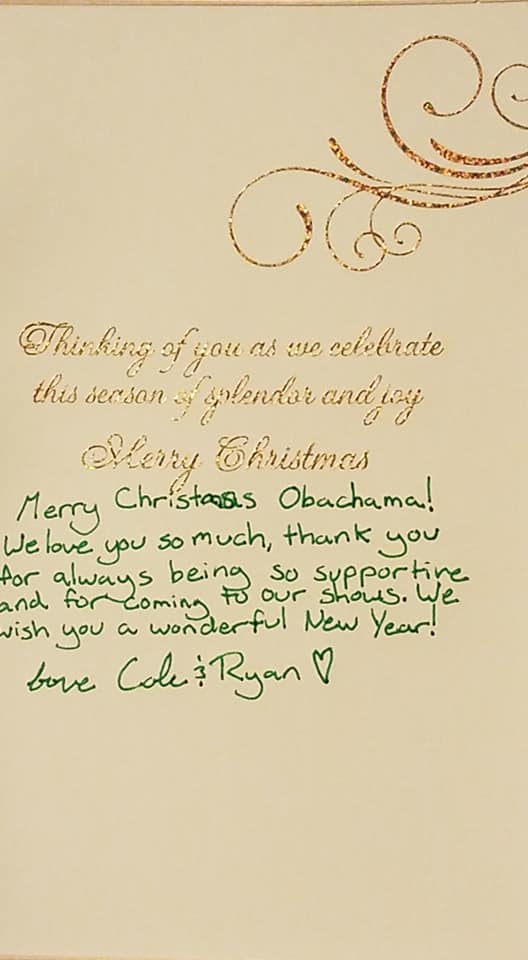 Thinking of you as we celebrate
this season of splendor and joy
Merry Christmas
Merry Christmas Obachama!
We love you so much, thank you
for always being so supportive
and for coming to our shows. We
wish you a wonderful New Year!
Love Cole & Ryan ♡